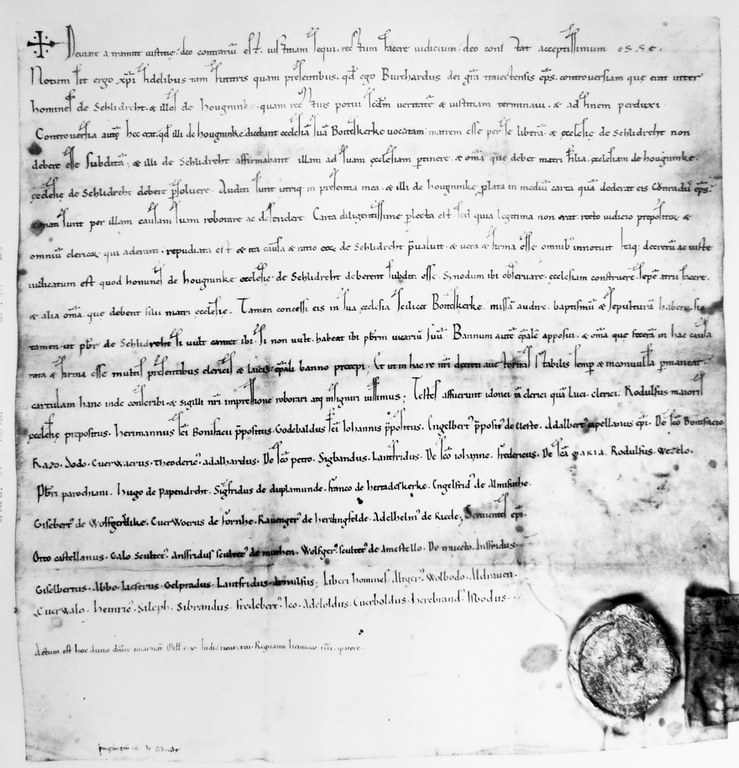 Deviare a tramite iusticie deo contrariū est. iusticiam sequi. rectum facere iudicium. deo constat acceptissimum esse.
Notum sit ergo xpi fidelibus tam futuris quam presentibus. qd ego Burchardus dei grā traiectensis eps. controversiam que erat inter
homines de Schlidreht. & illos de Hougnunke. quam rectius potui scdm veritatē & iusticiam terminavi. & ad finem perduxi.
Controversia autē hec erat. qd illi de hougnunke. dicebant ecclesiā suā Bontheskerke vocatam matrem esse per se liberā. & ecclesie de Schlidreht non
debere esse subditā. & illi de Schlidreht affirmabant illam ad suam ecclesiam pertinere. & omā que debet matri filia. ecclesiam de hougnunke.
ecclesie de Schlidreht debere psolvere. Auditi sunt utriq; in presentia mea. & illi de hougnunke plata in mediū carta quā dederat eis Conradus eps.
conati sunt per illam causam suam roborare ac defendere. Carta diligentissime plecta est. sed quia legitima non erat. recto iudicio prepositor &
omniū clericor qui aderant. repudiata est & ita causa & ratio eor de Schlidreht pvaluit. & vera & firma esse omnib' innotuit. Itaq; decretū ac iuste
iudicatum est quod homines de hougnunke ecclesie de Schlidreht deberent subditi esse. Synodum ibi observare. ecclesiam construere. sepem atrii facere.
& alia omā. que debent sui matri ecclesie. Tamen concessi eis in sua ecclesia scilicet Bontheskerke. missā audire. baptismū & sepulturā habere. sic
tamen ut pbr de Schlidreht si vult cantet ibi. si non vult. habeat ibi pbrm vicariū suū. Bannum autē epale apposui. & omā que feceram in hac causa
rata & firma esse multis presentibus clericis & laicis epali banno precepi. Et ut in hac re nri decreti auctoritas stabilis semp & inconvulsa pmaneat.
cartulam hanc inde conscribi. & sigilli nri impressione roborari atq; insigniri iussimus; Testes affuerunt idonei tā clerici quā laici. clerici. Rodulfus maioris
ecclesie prepositus. Hermannus sci Bonifacii ppositus. Godebaldus sci Iohannis ppositus. Engelbert' pposit' de tiele. Adalbert' capellanus epi. De sco Bonifacio
Razo. Dodo. Everwacrus. Theodericus. adalhardus. De sco petro. Sigbandus. Lantfridus. De sco iohanne. fredericus. De scā maria. Rodulfus. Wezelo.
Pbri parochiani. Hugo de papendreht. Sigfridus de duplamunde. franco de heradeskerke. Engelfrid' de Almisuthe.
Giselbert' de Wolfgerdike. Everwacrus de hornhe. Ravenger' de herdingsfelde. Adelhelm' de Riede; Servientes epi.
Otto castellanus. Galo scultet'. Amsfridus scultet' de muthen. Wolfger' scultet' de Amestello. De traiecto. Amsfridus.
Giselbertus. Abbo. Liefricus. Gelpradus. Lantfridus. Arnulfus; Liberi homines Aliger'. Wolbodo. Aldraven.
Everwalo. Heinric'. Gileph. Sibrandus. fredebert'. Ico. Adeloldus. Everholdus. Herebrand'. Isbodus.
Actum est hoc anno dnice incarnat M c v Indictione xiii Regnante heinrico iiii